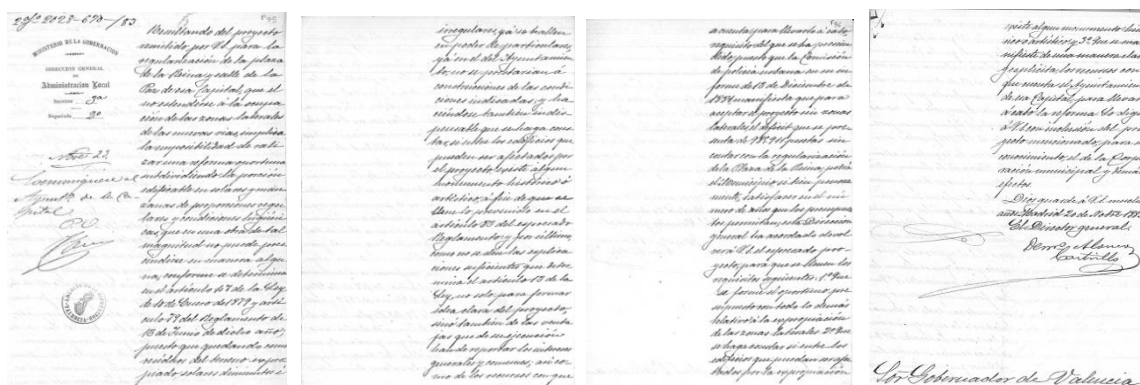 MINISTERIO DE LA GOBERNACIÓN
DIRECCIÓN GENERAL
DE
Administración Local
Sección 3ª
Negociado 2º
Comuníquese al
Aynto de la Ca-
pital
Remitiendo del proyecto
remitido por V.I. para la
regularización de la plaza
de la Reina y calle de la
Paz de esa Capital, que el
no extenderse á la ocupa
ción de las zonas laterales
de las nuevas vías, implica
la imposibilidad de reali
zar una reforma oportuna
subdividiendo la porción
edificable en solares y man
zanas de proporciones regu
lares y condiciones higiéni
cas, que en una obra de tal
magnitud no puede pres
cindirse en manera algu
na, conforme se determina
en el artículo 47 de la Ley
de 10 de Enero de 1879 y artí
culo 79 del Reglamento de
13 de Junio de dicho año;
puesto que quedando como
residuos del terreno expro
piado, solares diminutos é
irregulares, ya se hallen
en poder de particulares,
ya en el del Ayuntamien
to, no se prestarían á
construcciones de las condi
ciones indicadas; y ha
ciéndose también indis
pensable que se haga cons
tar, si entre los edificios que
puedan ser afectados por
el proyecto, existe algun
monumento histórico ó
artístico, á fin de que se
llene lo prevenido en el
artículo 83 del expresado
Reglamento; y por último,
como no se dan las esplica
ciones suficientes que deter
mina el artículo 13 de la
Ley, no solo para formar
idea clara del proyecto,
sino también de las venta
jas que de su ejecución
han de reportar los intereses
generales y comunes, así co
mo de los recursos con que
se cuenta para llevarlo á cabo,
requisito del que se ha prescin
dido, puesto que la Comisión
de policía urbana en su in
forme de 13 de Diciembre de
manifiesta que para
aceptar el proyecto sin zonas
laterales el déficit que se pre
senta de pesetas sin
contar con la regularización
de la Plaza de la Reina, podría
el Municipio si bien penosa
mente, satisfacer en el nú
mero de años que los presupues
tos permitan; esta Dirección
general ha acordado devol
ver á V.I. el expresado pro
yecto, para que se llenen los
requisitos siguientes: 1º Que
se forme el oportuno pre
supuesto con todo lo demás
relativo á la expropiación
de las zonas laterales 2º Que
se haga constar si entre los
edificios que puedan ser afec
tados por la expropiación
existe algun monumento histó
rico ó artístico; y 3º Que se ma
nifieste de una manera clara
y esplícita los recursos con
que cuenta el Ayuntamiento
de esa Capital, para llevar
á cabo la reforma. Lo digo
á V.I. con inclusión del pro
yecto mencionado, para su
conocimiento, el de la Corpo
ración municipal y demás
efectos.
Dios guarde á V.I. muchos
años. Madrid 20 de
El Director general.
Sor Gobernador de Valencia